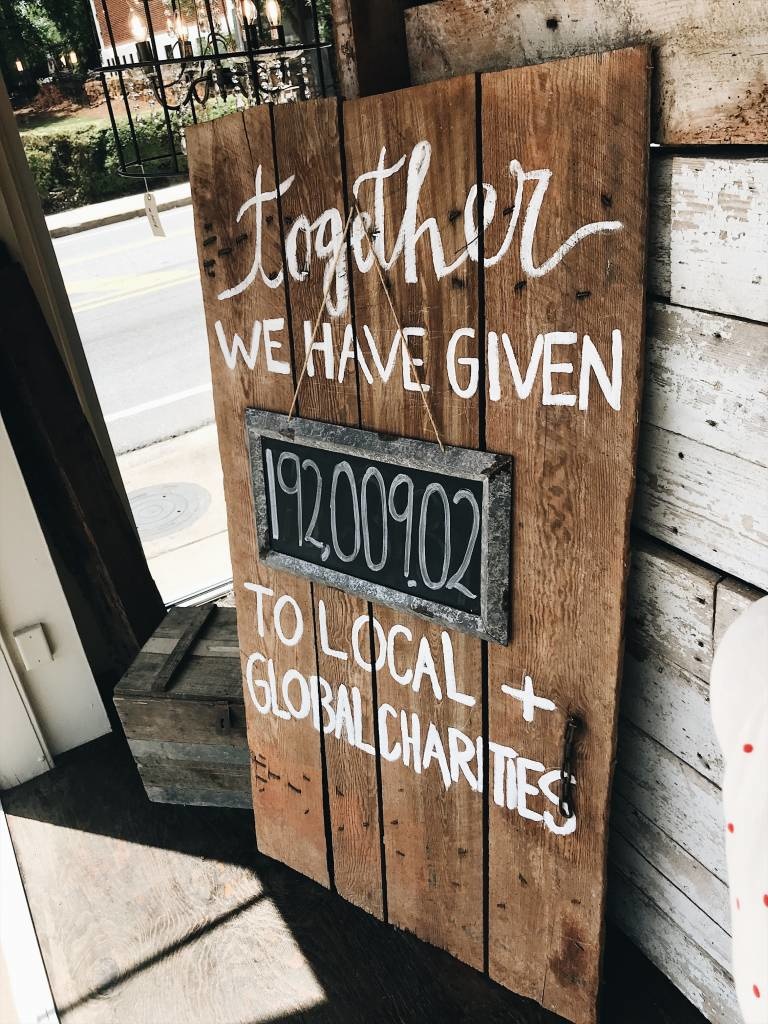 together
WE HAVE GIVEN
192,009.02
TO LOCAL +
GLOBAL CHARITIES